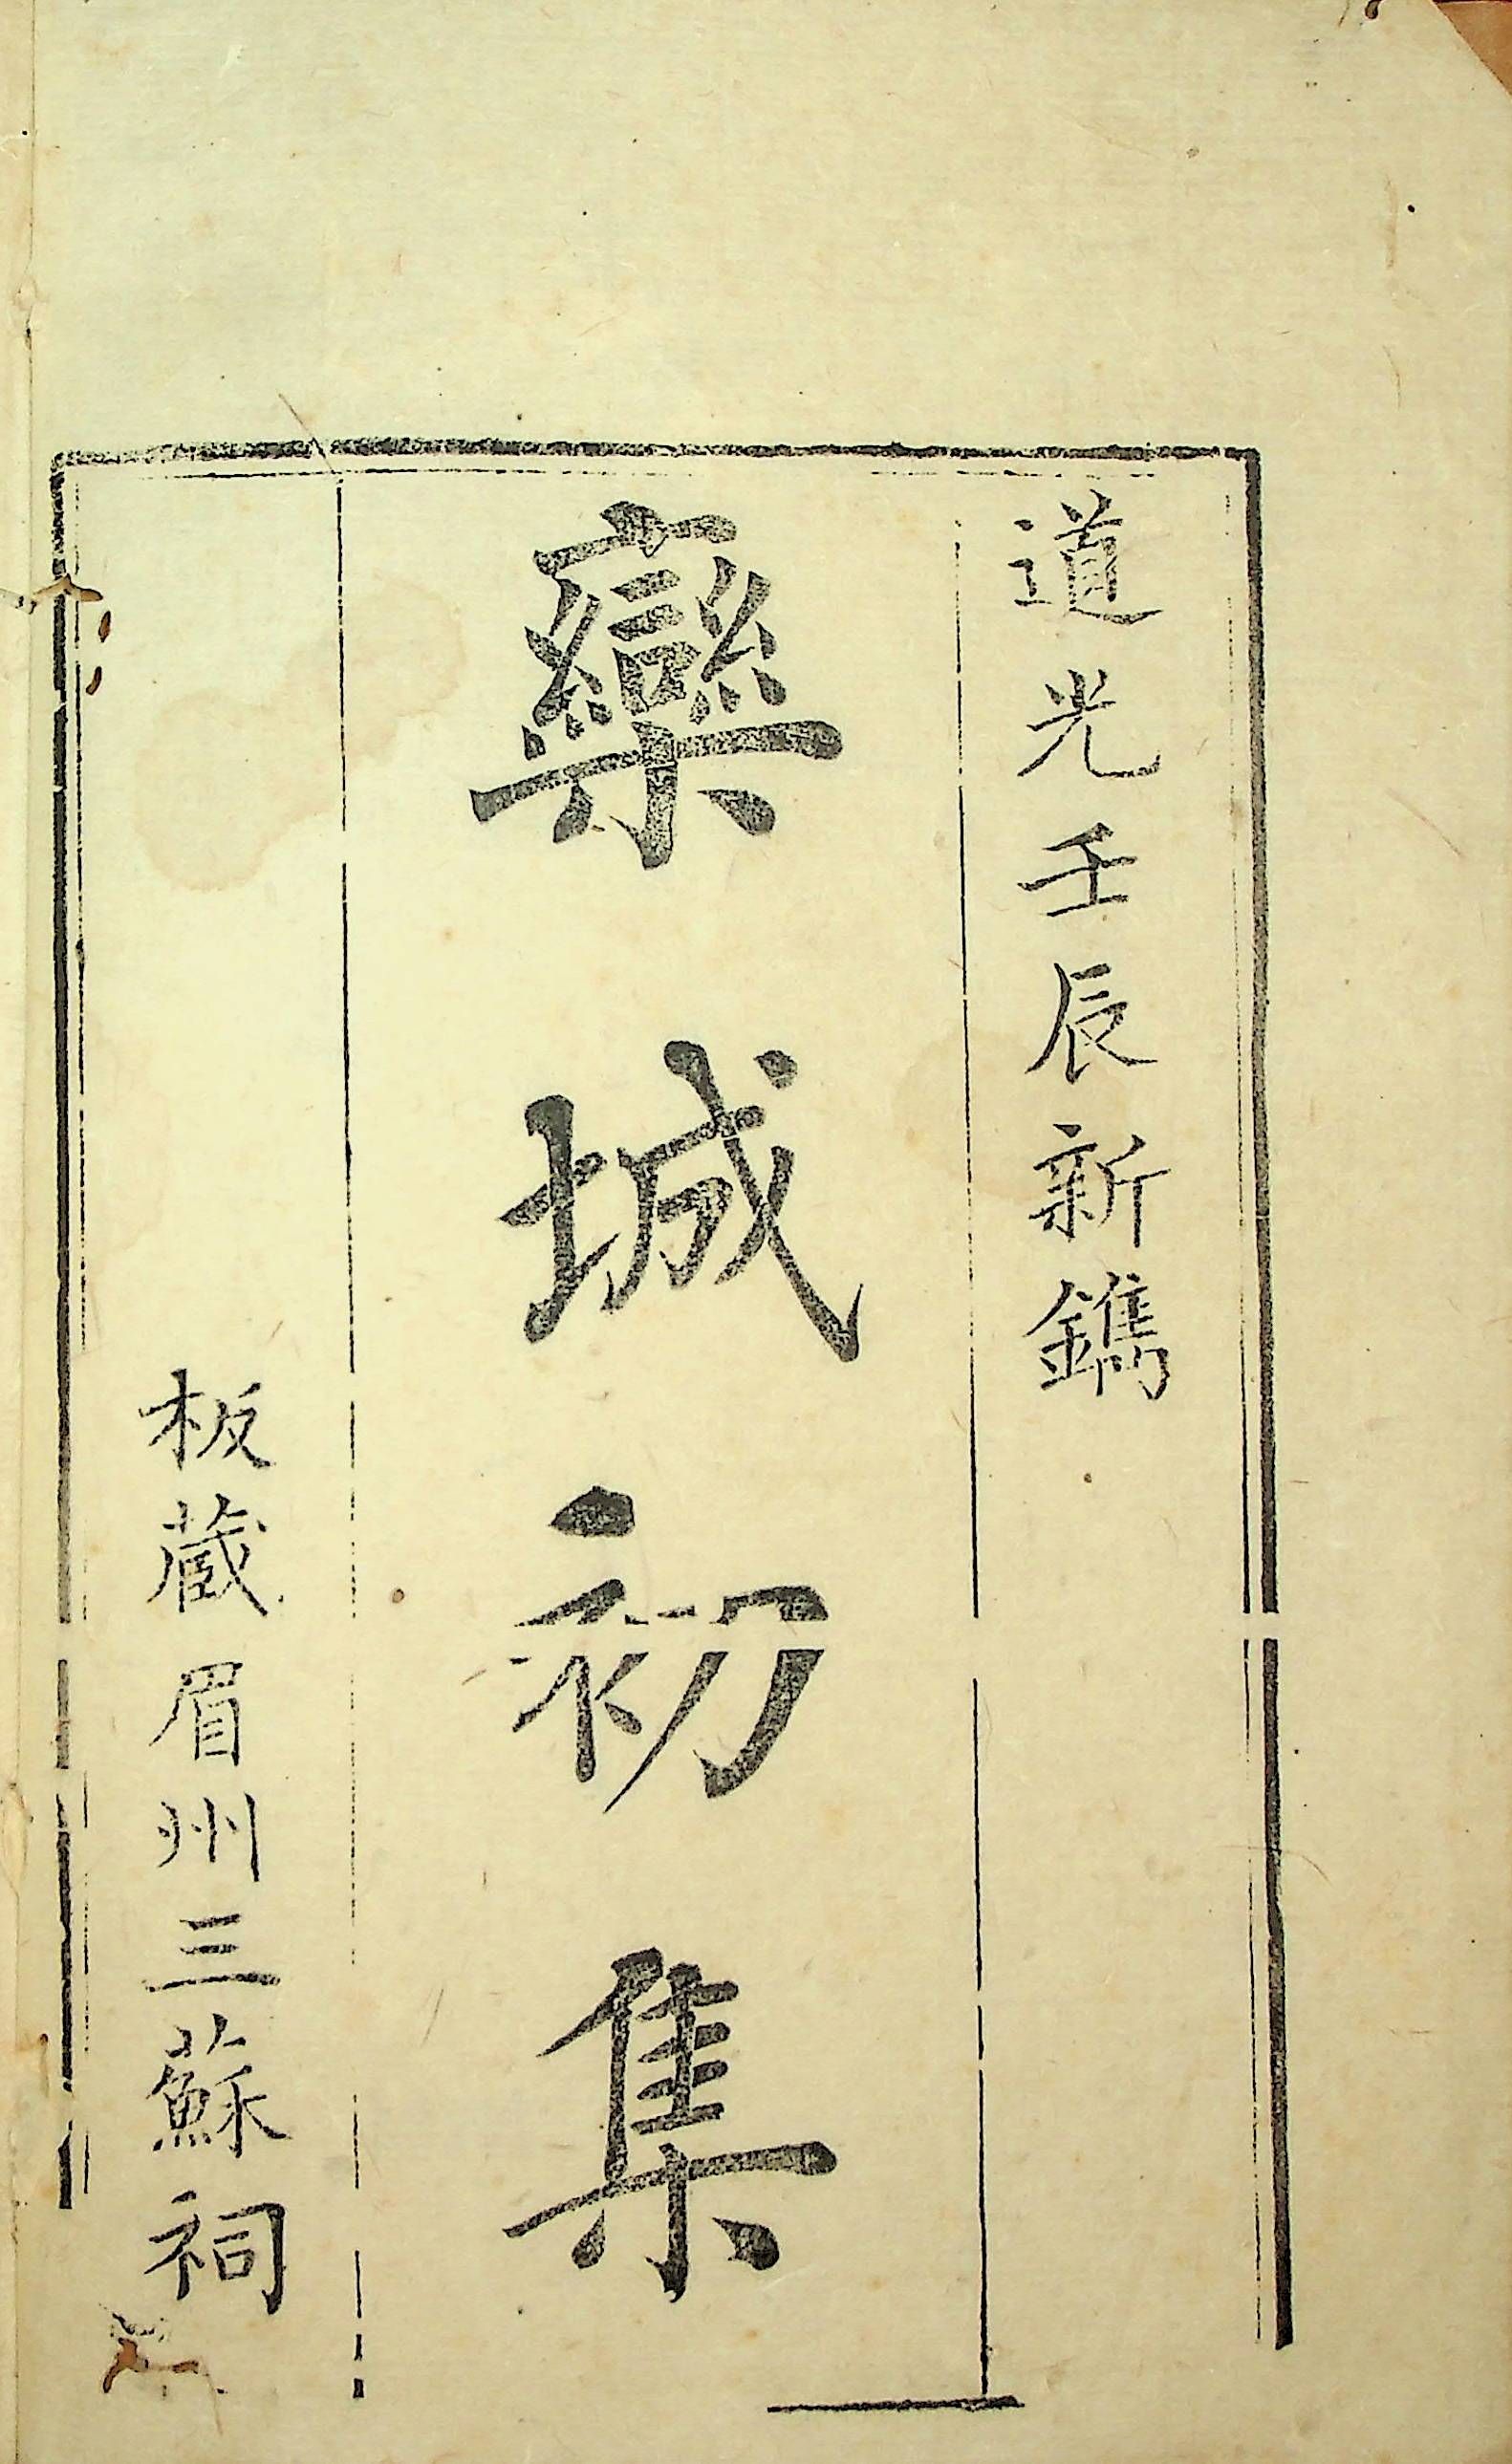 道光壬辰新鐫
欒城初集
板蔵眉州三蘇祠